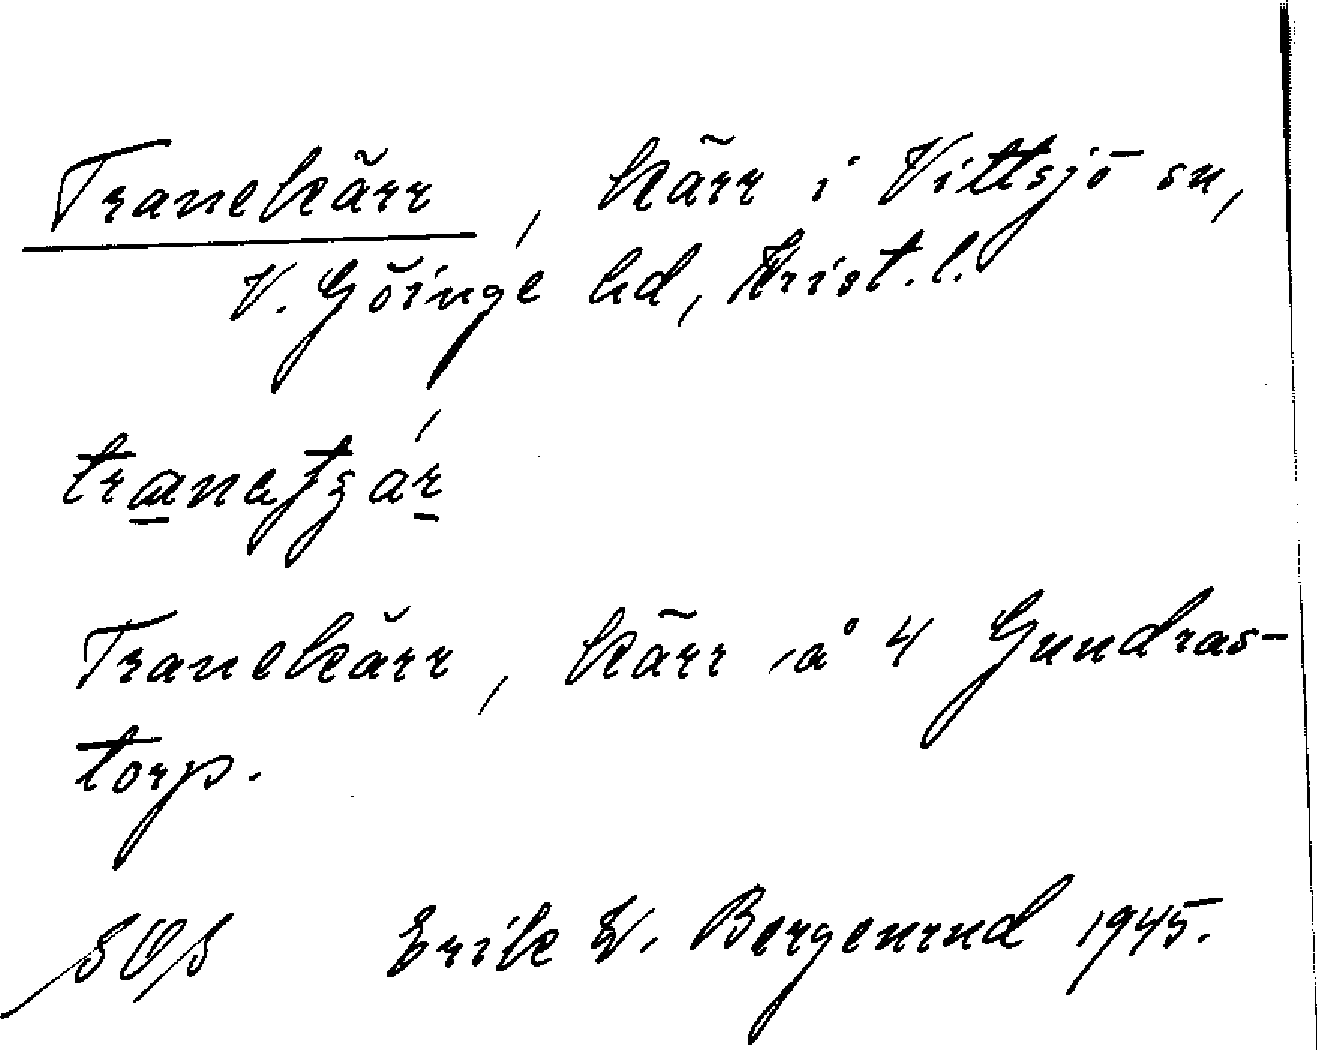 Tranekärr, kärr i Vittsjö sn,
V. Göinge hd, Krist. l.
Tranekärr, kärr å 4 Gundras-
torp.
SOS Erik W. Bergenrud 1945.